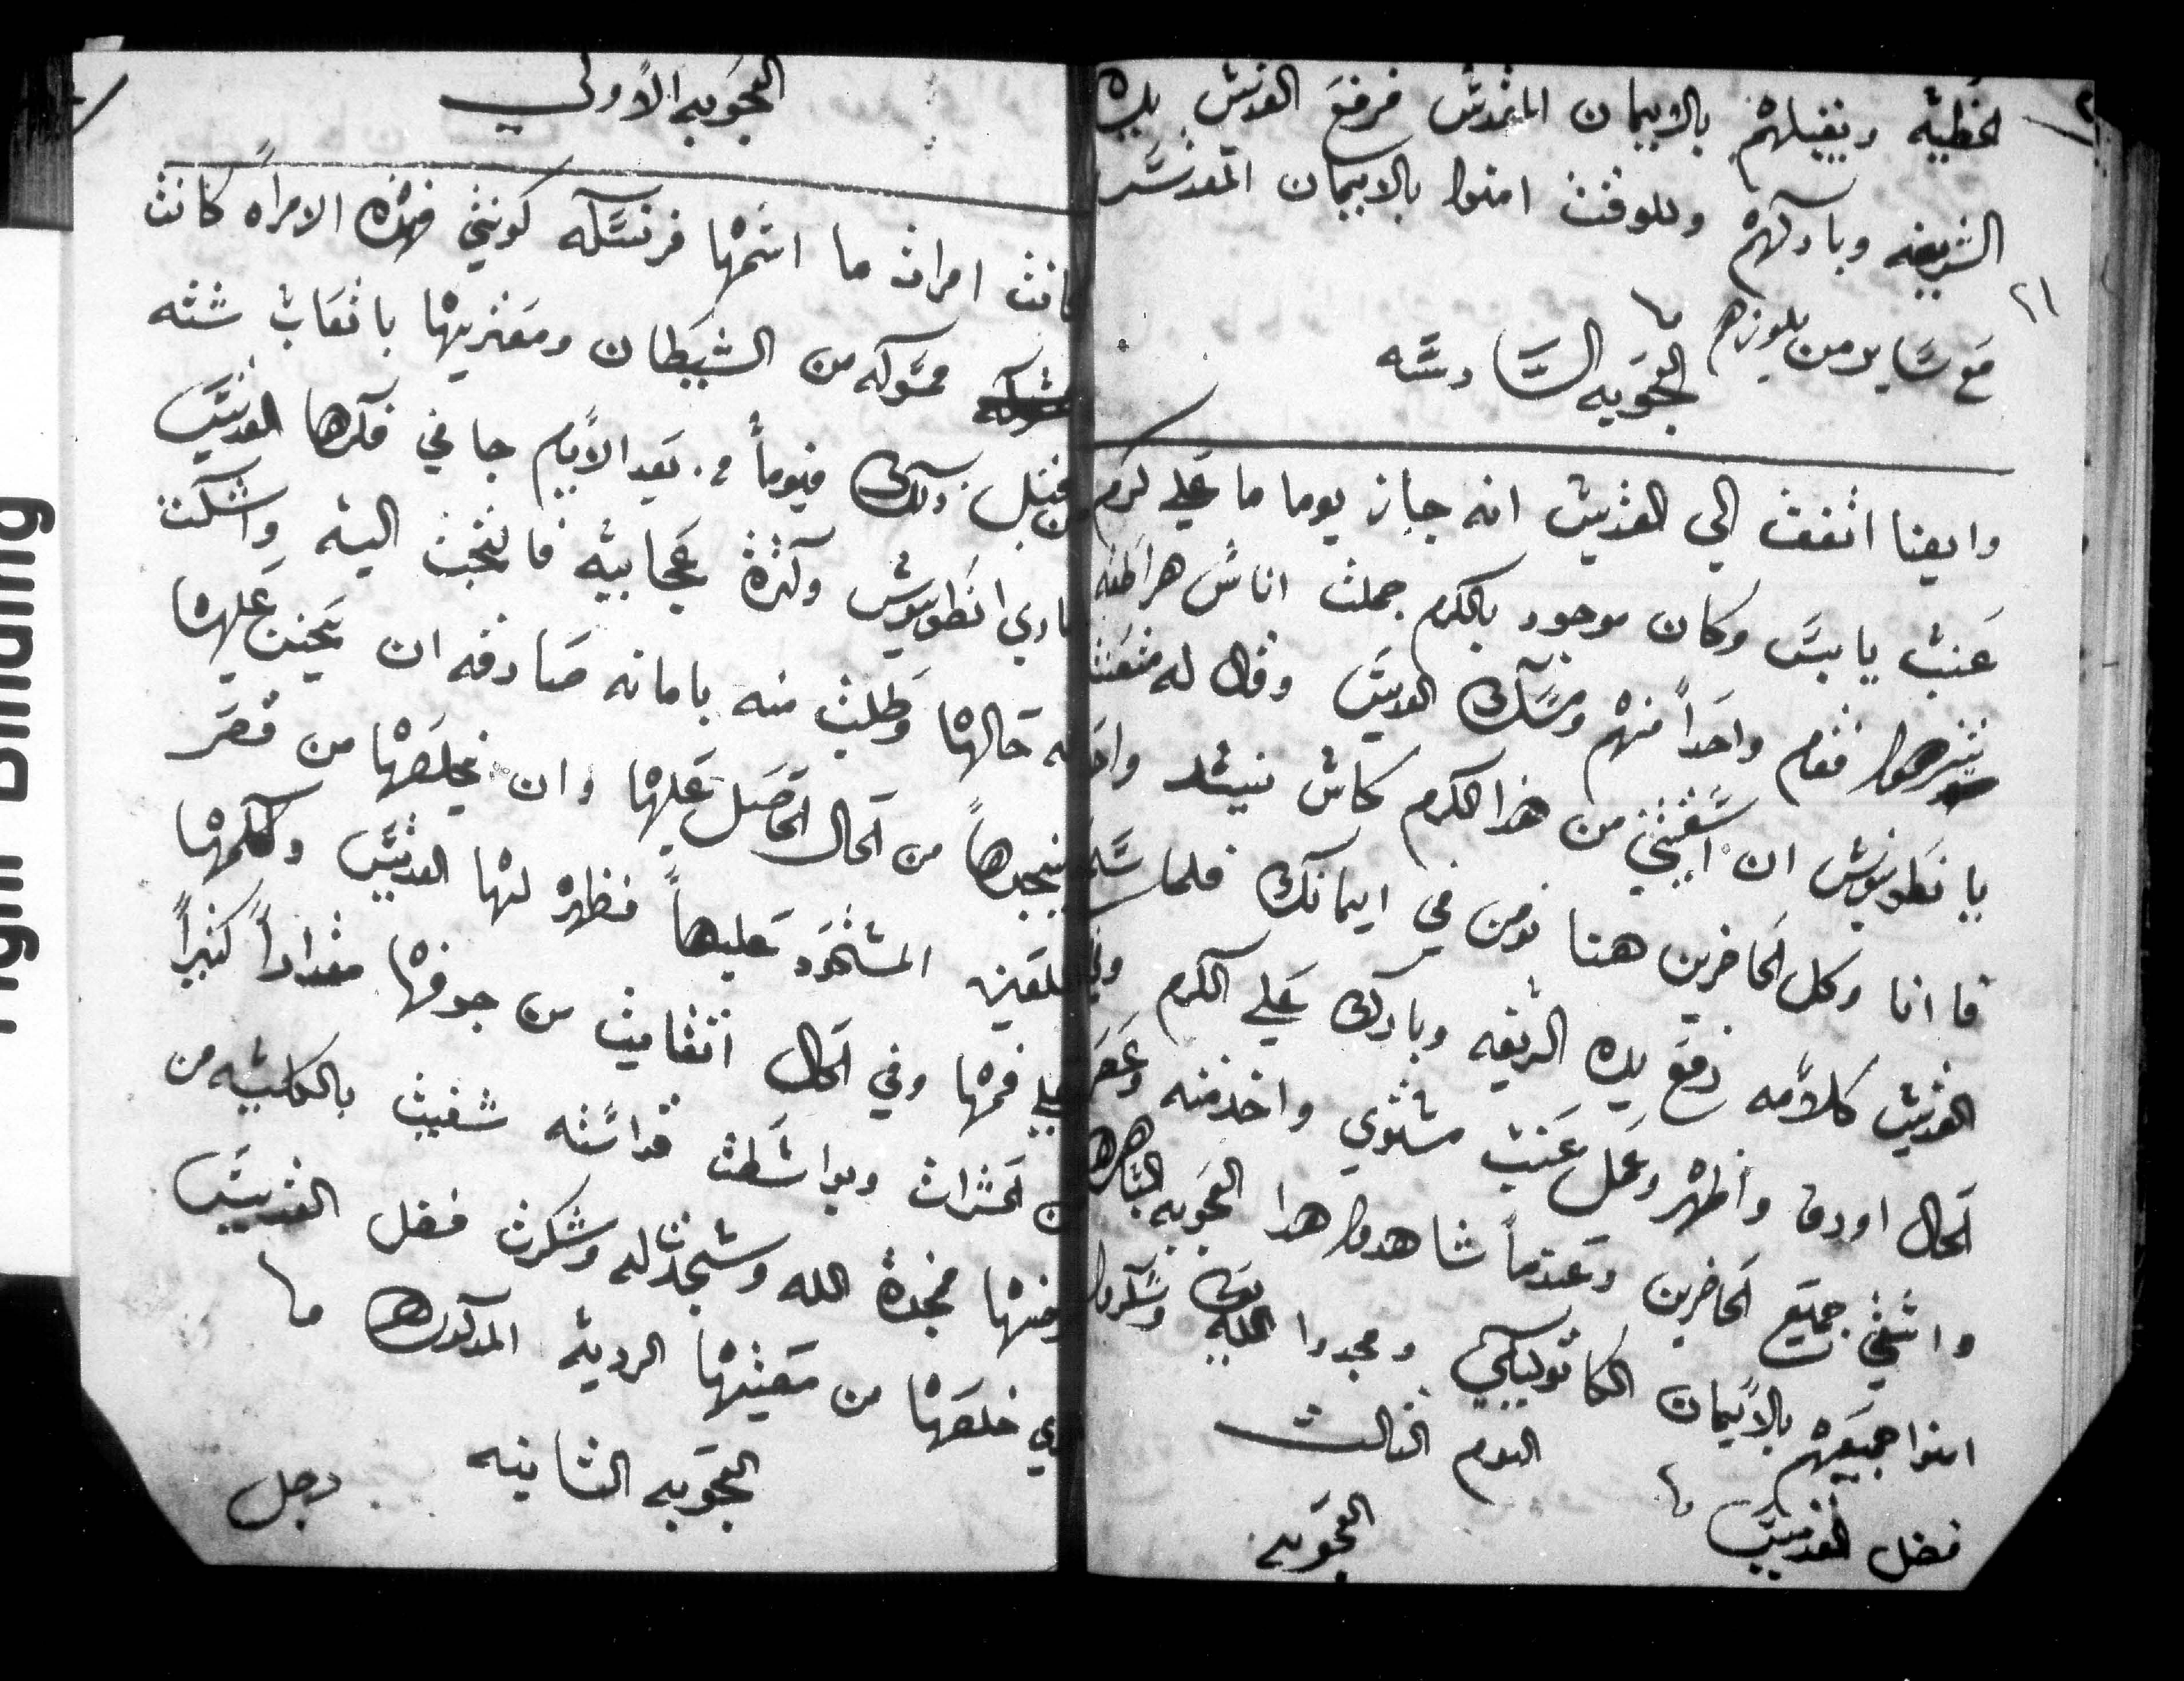 الخطيه ويقبلهم بالايمان المقدس فرفع القديس يده
الشريفه وباركهم وللوقت امنوا بالايمان المقدس
٢١
مع ساير من يلوزهم
العجوبه السادسه
وايضا اتفقت الي القديس انه جاز يوما ما علي كرم
عنب يابس وكان موجود بالكرم جملت اناس هراطقه
يتنزهوا فقام واحداً منهم ومسك القديس وقال له
يا انطونيوس ان اسقيتني من هذا الكرم كاس نبيد
فا انا وكل الحاضرين هنا نومن في ايمانك فلما
القديس كلامه رفع يده الشريفه وبارك علي الكرم وفي
الحال اورق واظهر وعمل عنب مستوي واخذ منه وعصر
واسقي جميع الحاضرين وعندما شاهدوا هدا العجوبه الباهره
امنوا جميعهم بالايمان الكاتوليكي ومجدوا الله وشكروا
فضل القديس
اليوم الثالث
العجوبه
العجوبه الاولي
كانت امرات ما اسمها فرنسسكه كونيتي فهذه الامراه كانت
ممسوكه من الشيطان ومعتريها باتعاب شته
من قبل ذلك فيوماً من بعد الايام جا في فكرها القديس
ماري انطونيوس وكثرة عجايبه فالتجت اليه واشكت
له حالها وطلبت منه بامانه صادقه ان يتحنن عليها
وينجدها من الحال الحاصل عليها وان يخلصها من قصر
اللعين المستحود عليها فظهر لها القديس وكلمها
علي فمها وفي الحال اتقايت من جوفها مقداراً كثيراً
من الحشرات وبواسطت قداسته شفيت بالكليه من
مرضها ممجدة الله وسجدت له وشكرت فضل القديس
الذي خلصها من مصيبتها الرديه المدكوره
العجوبه الثانيه
رجل